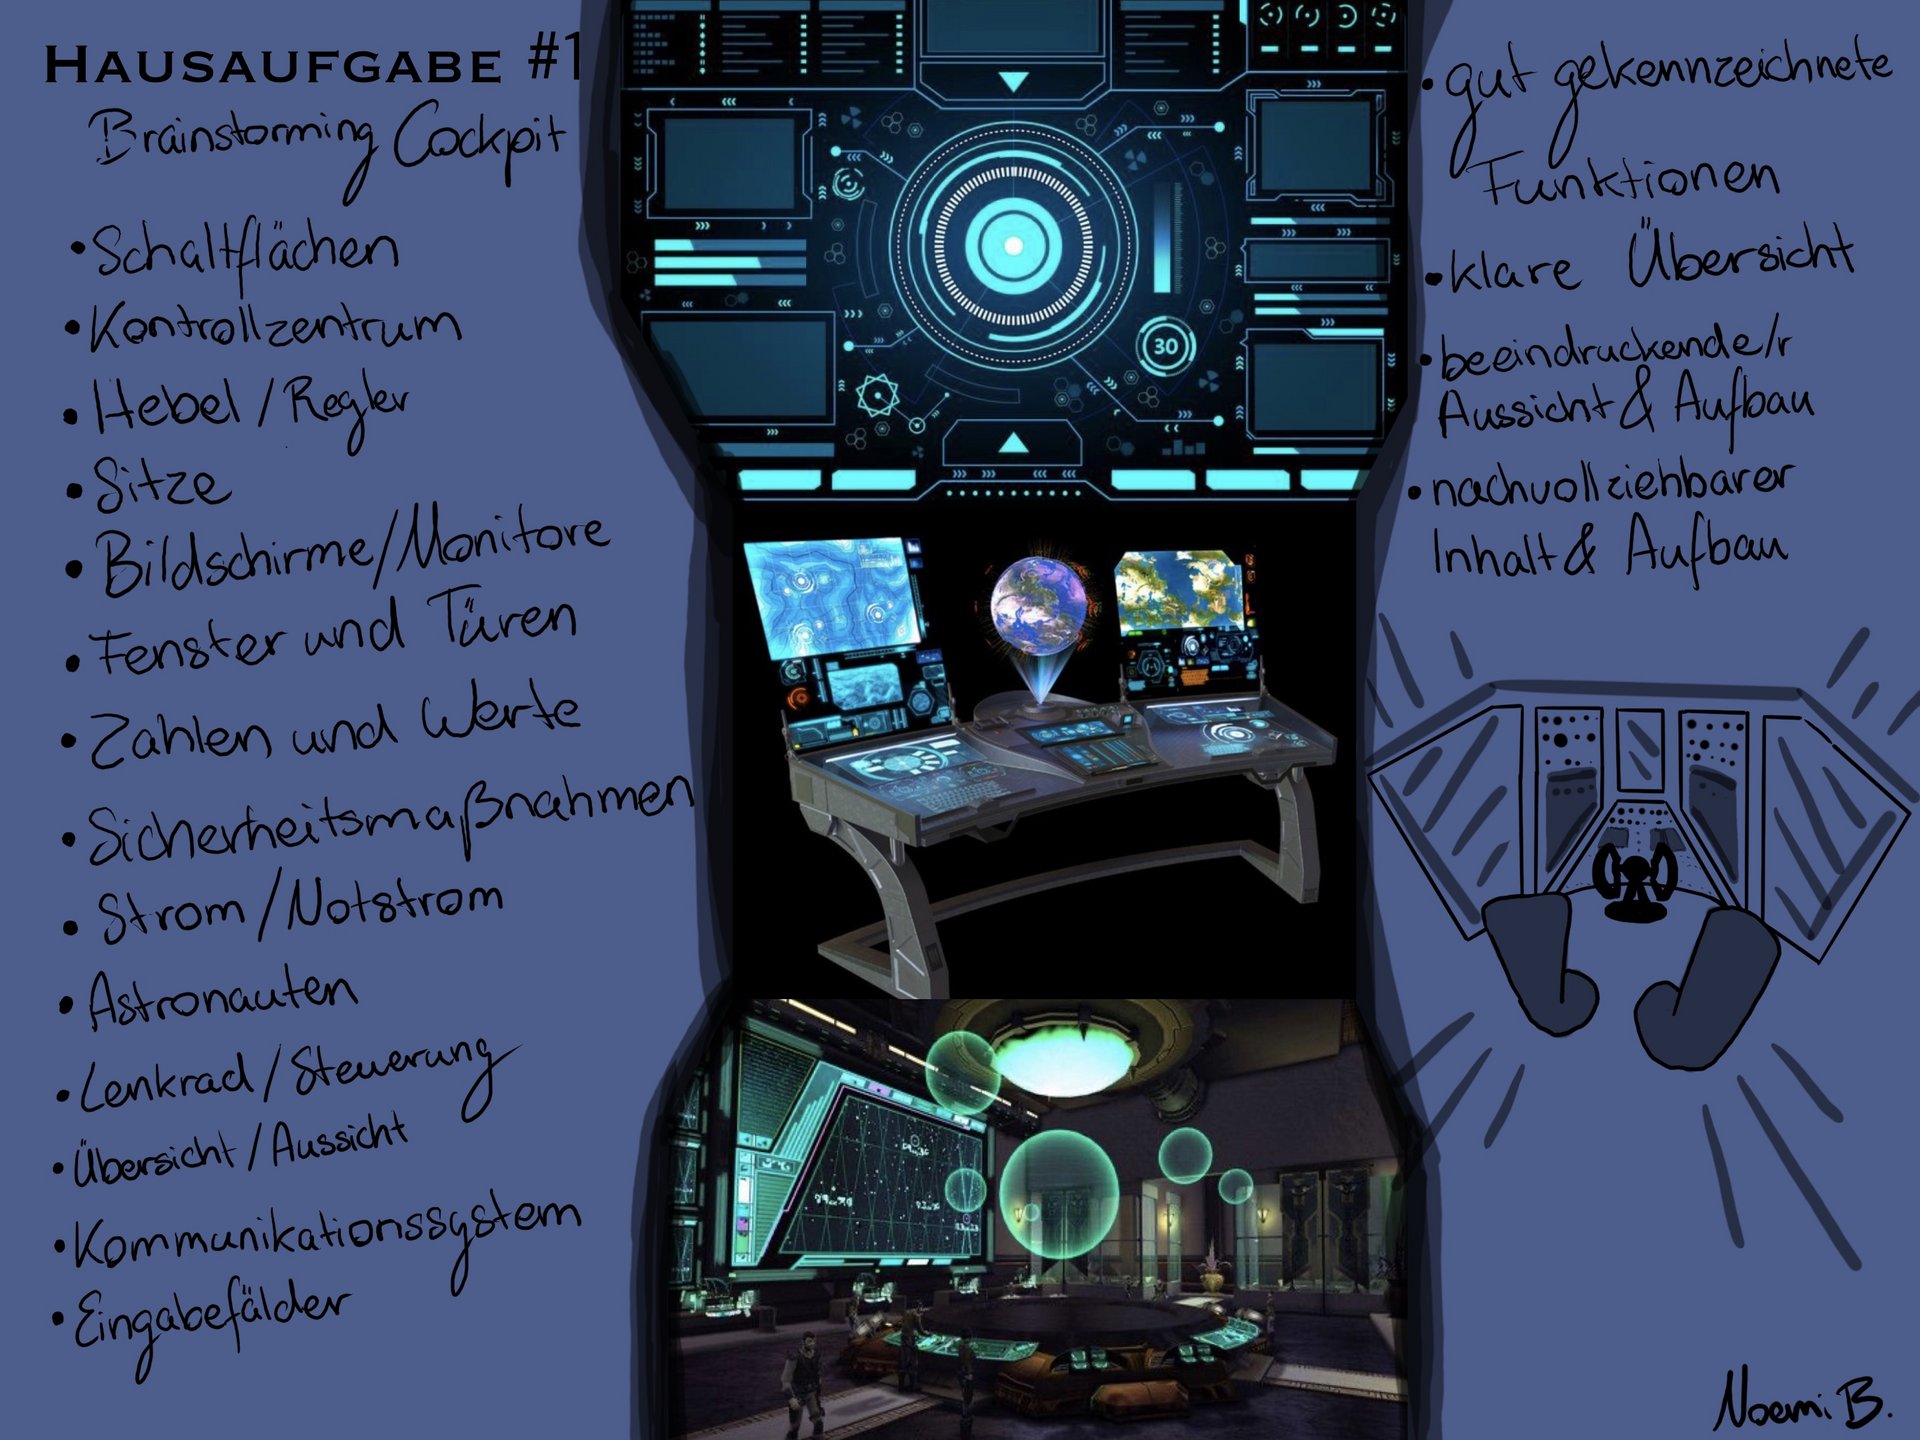 HAUSAUFGABE #1
Brainstorming Cockpit
• Schaltflächen
• Kontrollzentrum
• Hebel / Regler
• Sitze
• Bildschirme/Monitore
• Fenster und Türen
• Zahlen und Werte
• Sicherheitsmaßnahmen
• Strom/Notstrom
• Astronauten
• Lenkrad/Steuerung
• Übersicht/Aussicht
• Kommunikationssystem
• Eingabefälder
30
• gut gekennzeichnete
Funktionen
• klare Übersicht
• beeindruckende/r
Aussicht & Aufbau
• nachvollziehbarer
Inhalt & Aufbau
Noemi B.